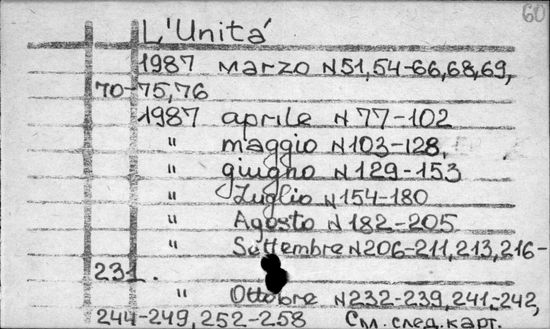 60
L'Unitá
1987 marzo N51,54-66,68,69,
70-75,76
1987 aprile N77-102
" maggio N103-128,
" giugno N129-153
" Luglio N154-180
" Agosto N182-205
" Settembre N206-211,213,216-
231.
" Ottobre N232-239,241-242,
244-249,252-258 См.след.карт.